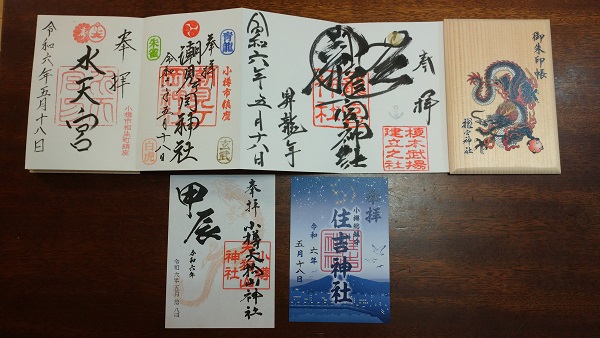 御朱印帳
龍宮神社
奉拝
龍宮神社
榎本武揚
建立之社
昇龍年
令和六年五月十六日
青龍
朱雀
白虎
玄武
小樽市鎮座
奉拝
潮見ケ岡神社
令和六年五月十八日
奉拝
水天宮
小樽市相生町鎮座
令和六年五月十八日
奉拝
小樽天狗山神社
甲辰
令和六年
令和六年五月十八日
奉拝
小樽総鎮守
住吉神社
令和六年
五月十八日